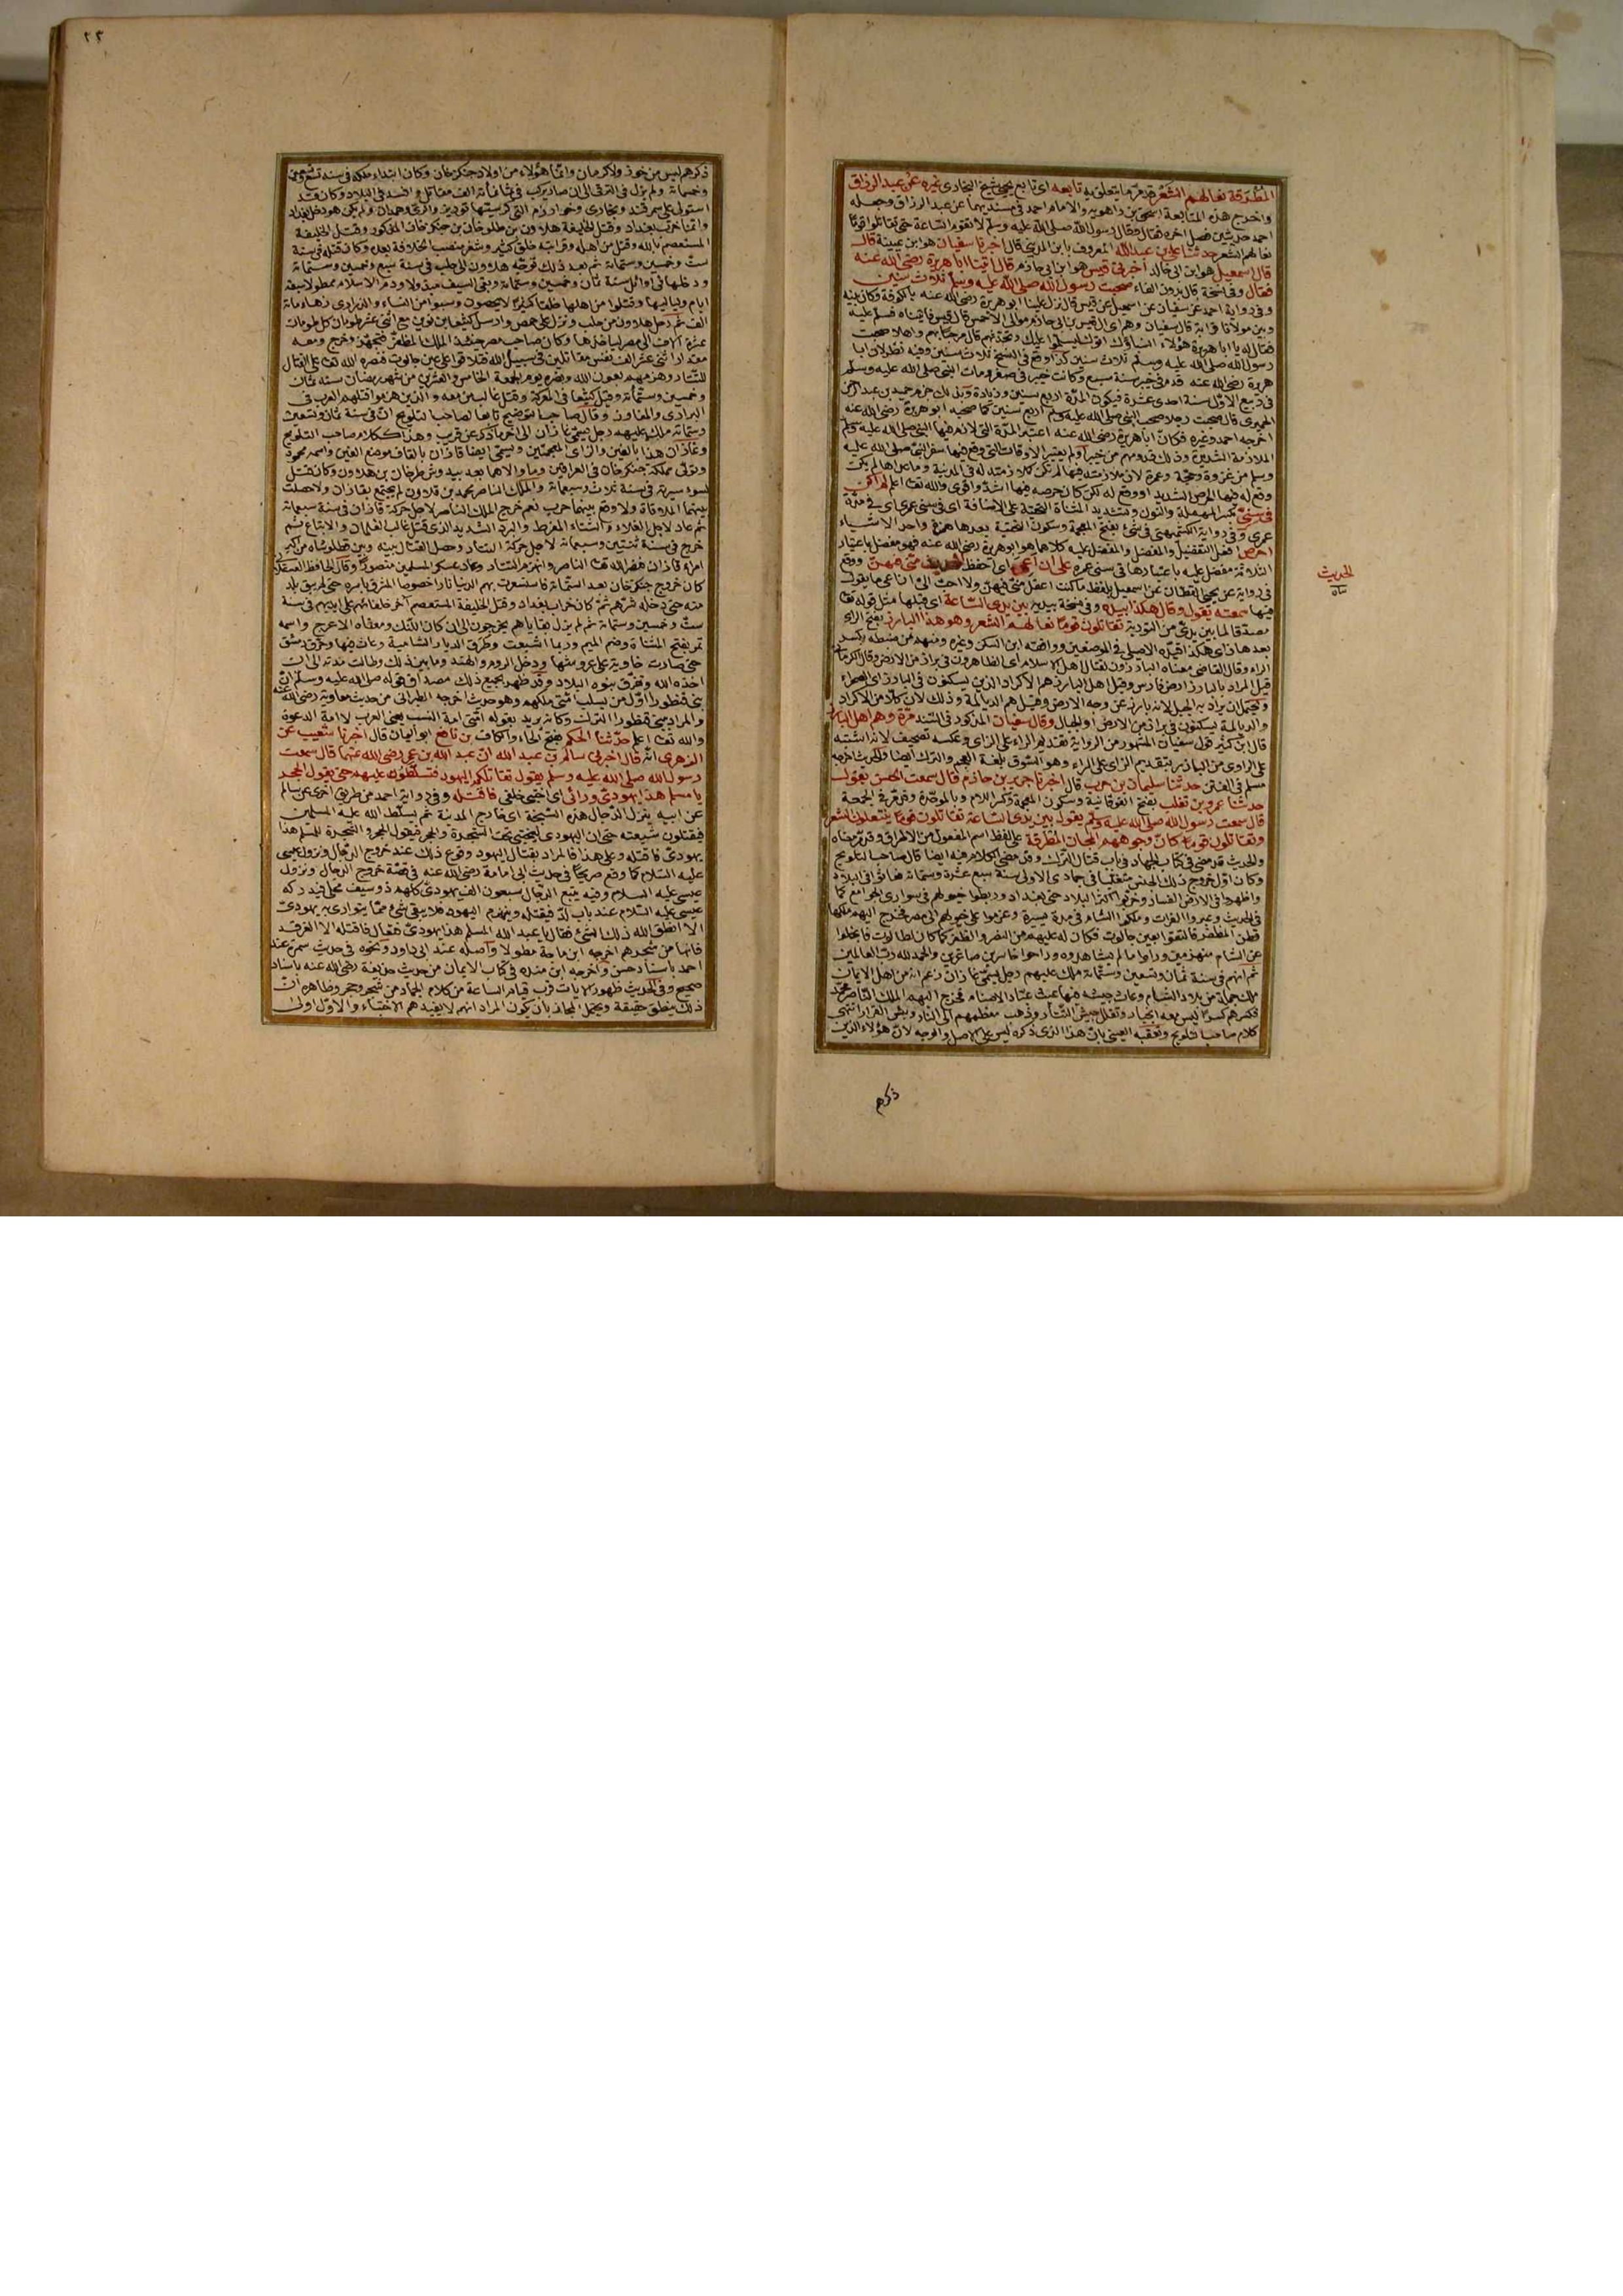 المطرقة نعالهم الشعر قد مر ما يتعلق به تابعه اي تابع يحيى شيخ البخاري غيره عن عبد الرزاق
واخرج هذه المتابعة اسحق بن راهويه والامام احمد في مسنديهما عن عبد الرزاق وجعله
احمد حديثين فصل اخره فقال وقال رسول الله صلى الله عليه وسلم لا تقوم الساعة حتى تقاتلوا قوما
نعالهم الشعر حدثنا علي بن عبد الله المعروف بابن المديني قال اخبرنا سفيان هو ابن عيينة قال
قال اسمعيل هو ابن ابي خالد اخبرني قيس هو ابن ابي حازم قال اتينا ابا هريرة رضي الله عنه
فقال وفي نسخة قال بدون الفاء صحبت رسول الله صلى الله عليه وسلم ثلاث سنين
وفي رواية احمد عن سفيان عن اسمعيل عن قيس قال نزل علينا ابو هريرة رضي الله عنه بالكوفة وكان بينه
وبين مولانا قرابة قال سفيان وهم اي ال قيس بن ابي حازم موالي لاحمس قال قيس فاتيناه نسلم عليه
رسول الله صلى الله عليه وسلم ثلاث سنين كذا وقع في النسخ ثلاث سنين وفيه نظر لان ابا
هريرة رضي الله عنه قدم في خيبر سنة سبع وكانت خيبر في صفر ومات النبي صلى الله عليه وسلم
في ربيع الاول سنة احدى عشرة فيكون المدة اربع سنين وزيادة وبذلك جزم حميد بن عبد الرحمن
الحميري قال صحبت رجلا صحب النبي صلى الله عليه وسلم اربع سنين كما صحبه ابو هريرة رضي الله عنه
اخرجه احمد وغيره فكان ابا هريرة رضي الله عنه اعتبر المدة التي لازم فيها النبي صلى الله عليه وسلم
الملازمة الشديدة وذلك قدومهم من خيبر ولم يعتبر الاوقات التي وقع فيها سفر النبي صلى الله عليه
وسلم من غزوة وحجة وعمرة لان ملازمته فيها لم تكن كملازمته له في المدينة
وقع له فيها الحرص الشديد او وقع له لكن كان حرصه فيها اشد واقوى والله تعالى اعلم لم اكن
في سني بكسر المهملة والنون وتشديد المثناة التحتية على الاضافة اي في سني عمري اي في مدة
عمري وفي رواية الكشميهني في شيء بفتح المعجمة وسكون التحتية بعدها همزة واحد الاشياء
احرص افعل التفضيل والمفضل والمفضل عليه كلاهما هو ابو هريرة رضي الله عنه فهو مفضل باعتبار
الثلاثة مفضل عليه باعتبارها في سني عمره على ان اعي اي احفظ الحديث مني فيهن ووقع
في رواية عن يحيى القطان عن اسمعيل بلفظ ما كنت اعقل مني فيهن ولا احب الي ان اعي ما يقول
فيها سمعته يقول وقال هكذا بيده وفي نسخة بيديه بين يدي الساعة اي قبلها مثل قوله تعالى
مصدقا لما بين يدي من التوراية تقاتلون قوما نعالهم الشعر وهو هذا البارز بفتح الراي
الراء وقال القابسي معناه البارزون لقتال اهل الاسلام اي الظاهرون في براز من الارض وقال الكرماني
قيل المراد بالبارز ارض فارس وقيل اهل البارز هم الاكراد الذين يسكنون في البارز اي الصحراء
ويحتمل ان يراد به الجبل لانه بارز عن وجه الارض وقيل هم الديالمة وذلك لان كلا من الاكراد
والديالمة يسكنون في براز من الارض او الجبال وقال سفيان المذكور في السند مرة وهم اهل البازر
على الراوي من البازر بتقديم الزاي على الراء وهو السوق بلغة العجم والترك ايضا والحديث اخرجه
مسلم في الفتن حدثنا سليمان بن حرب قال اخبرنا جرير بن حازم قال سمعت الحسن يقول
حدثنا عمرو بن تغلب بفتح الفوقانية وسكون المعجمة وكسر اللام وبالموحدة وقد مر في الجمعة
قال سمعت رسول الله صلى الله عليه وسلم يقول بين يدي الساعة تقاتلون قوما ينتعلون الشعر
وتقاتلون قوما كان وجوههم المجان المطرقة على لفظ اسم المفعول من الاطراق وقد مر معناه
والحديث قد مضى في كتاب الجهاد في باب قتال الترك وقد مضى الكلام فيه ايضا قال صاحب التلويح
وكان اول خروج ذلك الجنس متغلبا في جمادى الاولى سنة سبع عشرة وستمائة فعاثوا في البلاد
واظهروا في الارض الفساد وخربوا اكثر البلاد حتى بغداد وربطوا خيولهم في سواري الجوامع كما
في الحديث وعبروا الفرات وملكوا الشام في مدة يسيرة وعزموا على خيولهم الى مصر فخرج اليهم ملكها
قطز المظفر فالتقوا بعين جالوت فكان له عليهم من النصر والظفر كما كان لطالوت فانجلوا
عن الشام منهزمين وراوا ما لم يشاهدوه وراحوا خاسرين صاغرين والحمد لله رب العالمين
ثم انهم في سنة ثمان وتسعين وستمائة ملك عليهم رجل يسمى غازان زعم انه من اهل الايمان
ملك جملة من بلاد الشام وعاث جيشه فيها عيث عباد الاصنام فخرج اليهم الملك الناصر محمد
فكسرهم كسرا ليس معه انجبار وتفلل جيش التتار وذهب معظمهم الى النار وبئس القرار انتهى
كلام صاحب التلويح وتعقبه العيني بان هذا الذي ذكره ليس على الاصل والوجه لان هؤلاء الذين
ذكرهم
الحديث
ساه
٢٣
ذكرهم ليس من خوز ولا كرمان وانما هؤلاء من اولاد جنكز خان وكان ابتداء ملكه في سنة تسع وتسعين
وخمسمائة ولم يزل في الترقي الى ان صار يركب في ثمانمائة الف مقاتل وافسد في البلاد وكان قد
استولى على سمرقند وبخارى وخوارزم التي كرسيتها تبريز والري وهمدان ولم يكن هو دخل بغداد
وانما خرب بغداد وقتل الخليفة هلاوون بن طلوخان بن جنكز خان المذكور وقتل الخليفة
المستعصم بالله وقتل من اهله وقرابته خلق كثير وشغر منصب الخلافة بعده وكان قتله في سنة
ست وخمسين وستمائة ثم بعد ذلك توجه هلاوون الى حلب في سنة سبع وخمسين وستمائة
ودخلها في اوائل سنة ثمان وخمسين وستمائة وبقي السيف مبذولا ودم الاسلام ممطولا سبعة
ايام ولياليها وقتلوا من اهلها خلقا كثيرا لا يحصون وسبوا من النساء والذراري زهاء مائة
الف ثم رحل هلاوون من حلب ونزل على حمص وارسل كتبغا بن نوين مع اثني عشر طومان كل طومان
عشرة الاف الى مصر لياخذها وكان صاحب مصر حينئذ الملك المظفر فتجهز وخرج ومعه
مقدار اثني عشر الف نفس مقاتلين في سبيل الله فتلاقوا على عين جالوت فنصره الله تعالى على القتال
للتتار وهزمهم بعون الله ونصره يوم الجمعة الخامس والعشرين من شهر رمضان سنة ثمان
وخمسين وستمائة وقتل كتبغا في المعركة وقتل غالب من معه والذين هربوا قتلهم العرب في
البراري والمفاوز وقال صاحب التوضيح تابعا لصاحب التلويح ان في سنة ثمان وتسعين
وستمائة ملك عليهم رجل يسمى غازان الى اخر ما ذكر عن قريب وهذا ككلام صاحب التلويح
وغازان هذا بالغين والزاي المعجمتين ويسمى ايضا قازان بالقاف موضع الغين واسمه محمود
وتولى مملكة جنكز خان في العراقين وما والاهما بعد بيدوش طرخان بن هلاوون وكان قتل
لسوء سيرته في سنة ثلاث وسبعمائة والملك الناصر محمد بن قلاوون لم يجتمع بقازان ولا حصلت
بينهما الملاقاة ولا وقع بينهما حرب نعم خرج الملك الناصر لاجل حركة قازان في سنة سبعمائة
ثم عاد لاجل الغلاء والشتاء المفرط والبرد الشديد الذي قتل غالب الغلمان والاتباع ثم
خرج في سنة ثنتين وسبعمائة لاجل حركة التتار وحصل القتال بينه وبين قطلوشاه من اكبر
امراء قازان فنصر الله تعالى الناصر وانهزم التتار وعاد عسكر المسلمين منصورا وقال الحافظ العسقلاني
كان خروج جنكز خان بعد الستمائة فاستسعرت بهم الدنيا نارا خصوصا المشرق باسره حتى لم يبق بلد
منه حتى دخله شرهم ثم كان خراب بغداد وقتل الخليفة المستعصم اخر خلفائهم على ايديهم في سنة
ست وخمسين وستمائة ثم لم يزل بقاياهم يخرجون الى ان كان اللنك ومعناه الاعرج واسمه
تمر بفتح المثناة وضم الميم وربما اشبعت وطرق الديار الشامية وعاث فيها وحرق دمشق
حتى صارت خاوية على عروشها ودخل الروم والهند وما بين ذلك وطالت مدته الى ان
اخذه الله وتفرق بنوه البلاد وقد ظهر بجميع ذلك مصداق قوله صلى الله عليه وسلم ان
بني قنطورا اول من يسلب امتي ملكهم وهو حديث اخرجه الطبراني من حديث معاوية رضي الله عنه
والمراد ببني قنطورا الترك وكانه يريد بقوله امتي امة النسب يعني العرب لا امة الدعوة
والله تعالى اعلم حدثنا الحكم بفتح الحاء والكاف بن نافع ابو اليمان قال اخبرنا شعيب عن
الزهري انه قال اخبرني سالم بن عبد الله ان عبد الله بن عمر رضي الله عنهما قال سمعت
رسول الله صلى الله عليه وسلم يقول تقاتلكم اليهود فتسلطون عليهم حتى يقول الحجر
يا مسلم هذا يهودي ورائي اي اختبى خلفي فاقتله وفي رواية احمد من طريق اخرى عن سالم
عن ابيه ينزل الدجال هذه السبخة اي خارج المدينة ثم يسلط الله عليه المسلمين
فيقتلون شيعته حتى ان اليهودي ليختبي تحت الشجرة والحجر فيقول الحجر والشجرة للمسلم هذا
يهودي فاقتله وعلى هذا فالمراد بقتال اليهود وقوع ذلك عند خروج الدجال ونزول عيسى
عليه السلام كما وقع صريحا في حديث ابي امامة رضي الله عنه في قصة خروج الدجال ونزول
عيسى عليه السلام وفيه يتبع الدجال سبعون الف يهودي كلهم ذو سيف محلى فيدركه
عيسى عليه السلام عند باب لد فيقتله وينهزم اليهود فلا يبقى شيء مما يتوارى به يهودي
الا انطق الله ذلك الشيء فقال يا عبد الله المسلم هذا يهودي فتعال فاقتله الا الغرقد
فانها من شجرهم اخرجه ابن ماجة مطولا واصله عند ابي داود ونحوه في حديث سمرة عند
احمد باسناد حسن واخرجه ابن منده في كتاب الايمان من حديث حذيفة رضي الله عنه باسناد
صحيح وفي الحديث ظهور الايات قرب قيام الساعة من كلام الجماد من شجر وحجر وظاهره ان
ذلك ينطق حقيقة ويحتمل المجاز بان يكون المراد انهم لا يفيدهم الاختباء والاول اولى